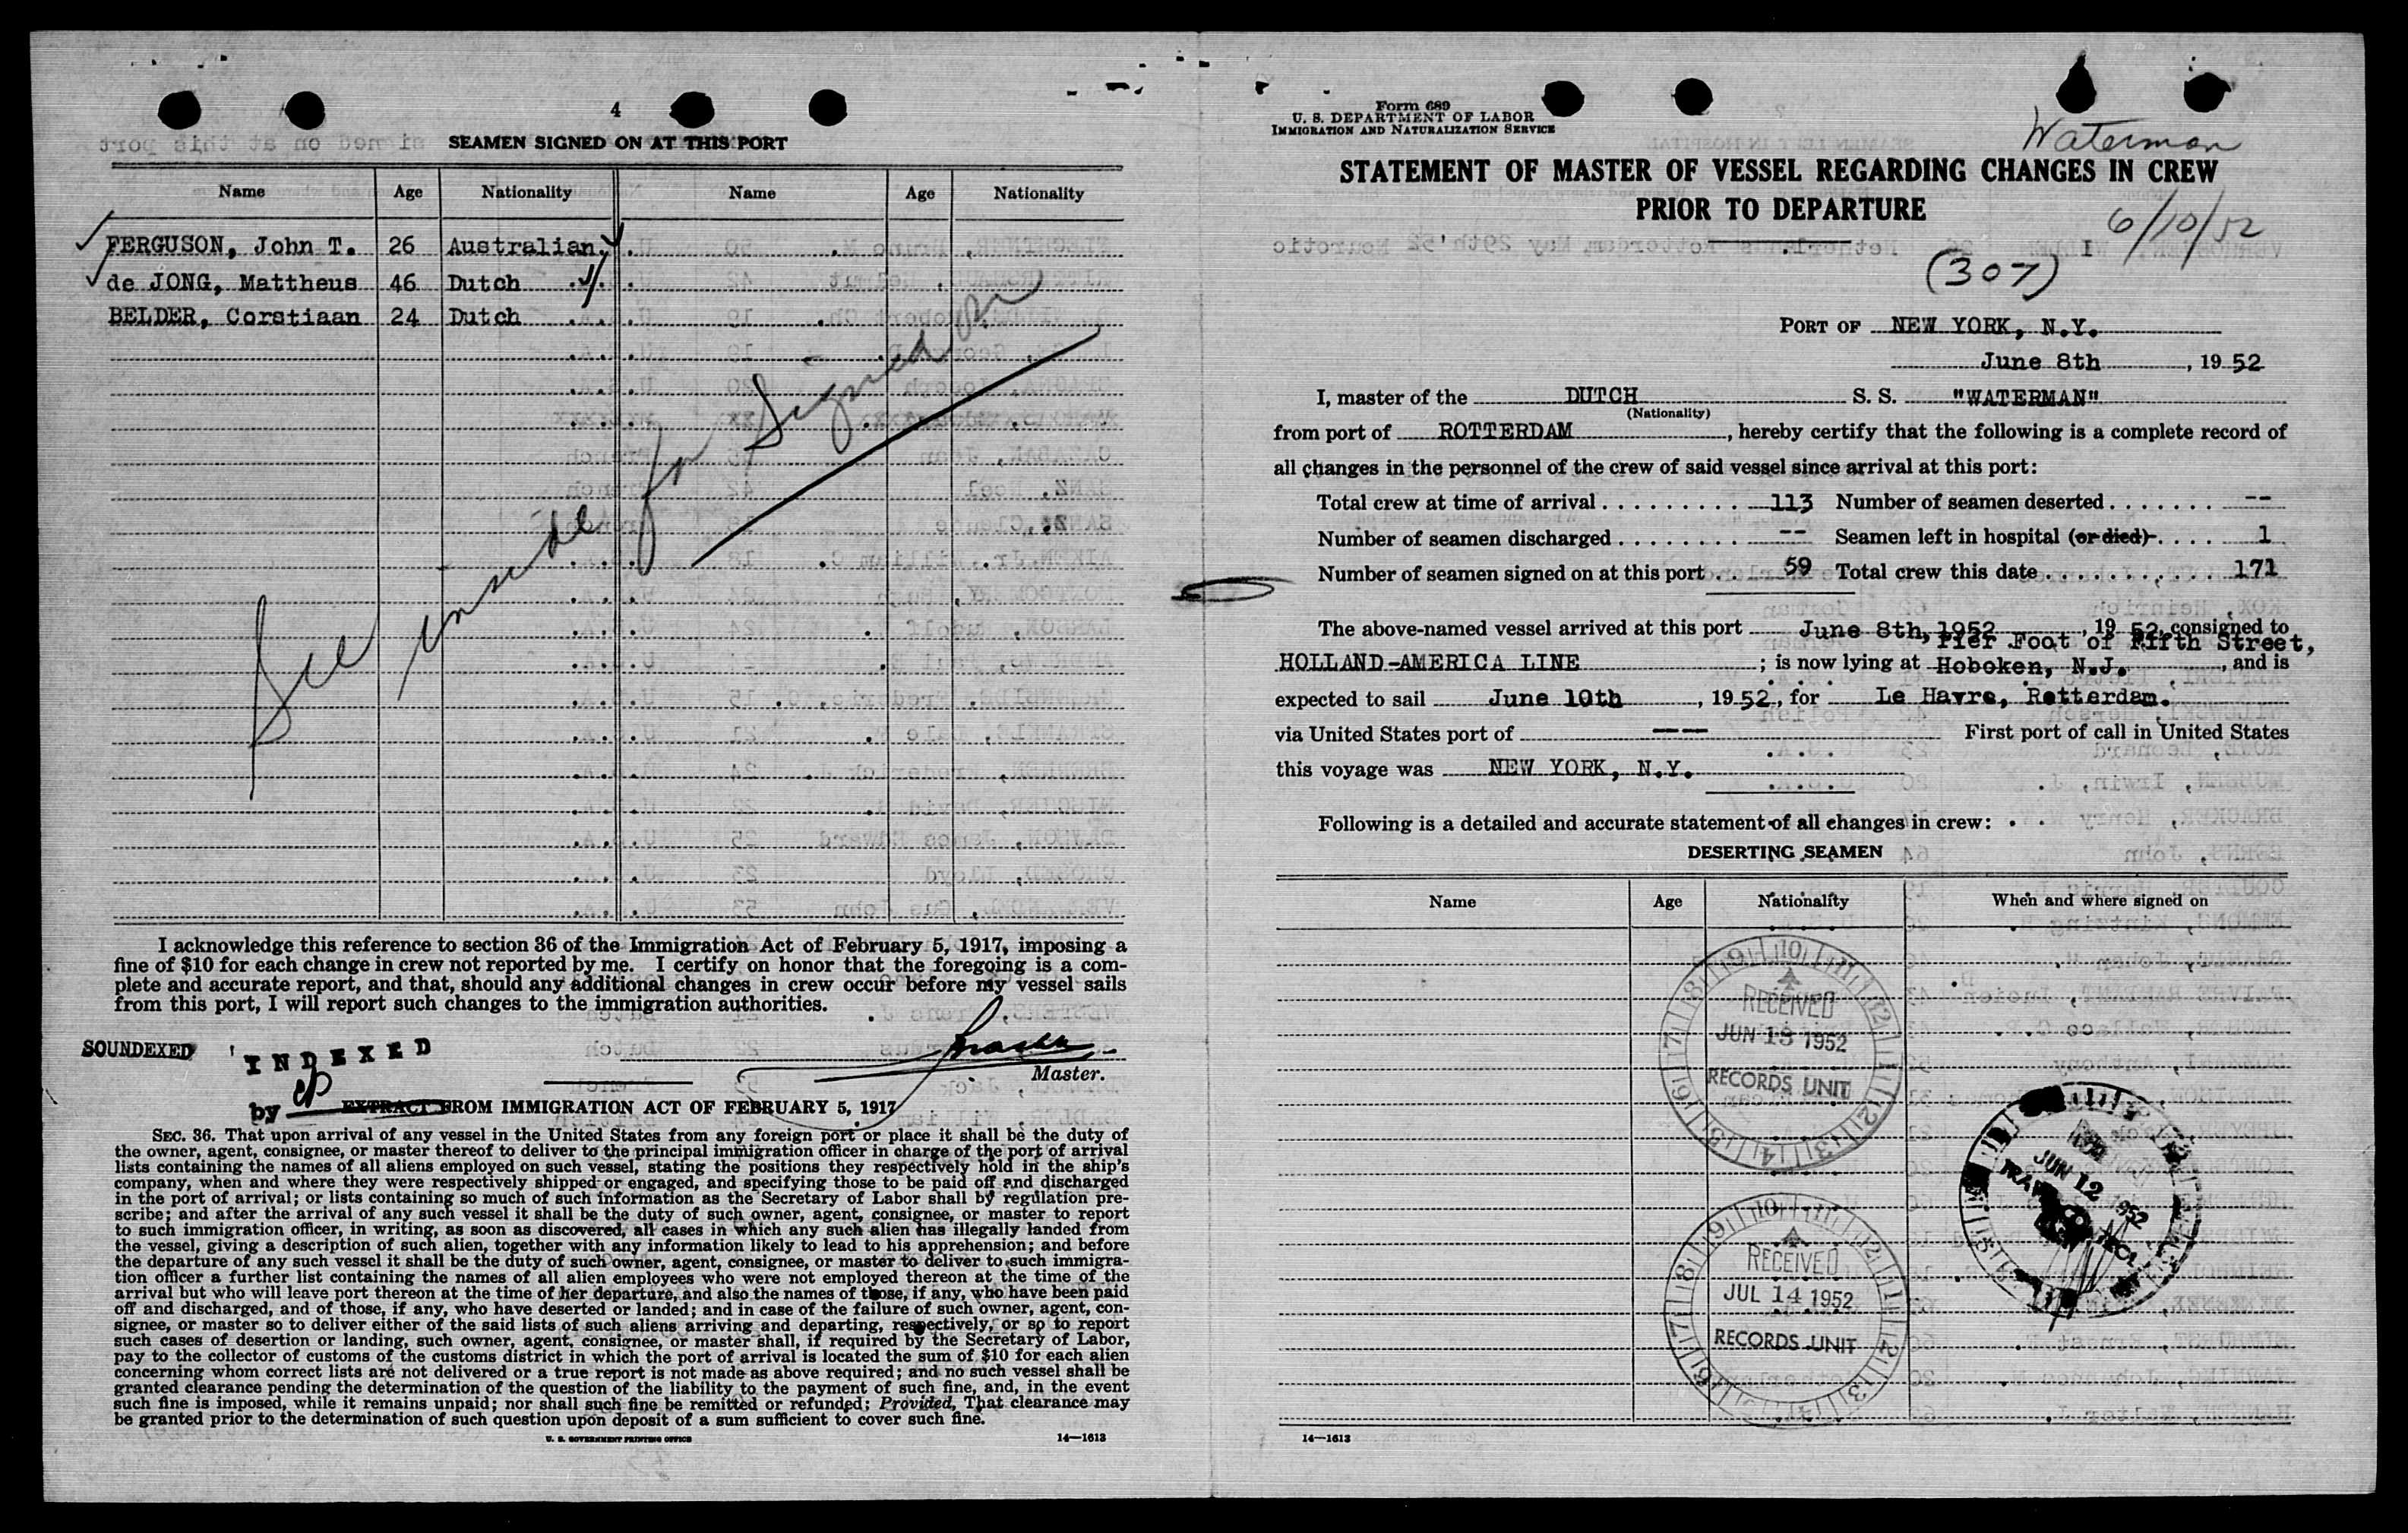 4
SEAMEN SIGNED ON AT THIS PORT
Name Age Nationality Name Age Nationality
FERGUSON, John T. 26 Australian
de JONG, Mattheus 46 Dutch
BELDER, Corstiaan 24 Dutch
See inside for Signed on
I acknowledge this reference to section 36 of the Immigration Act of February 5, 1917, imposing a
fine of $10 for each change in crew not reported by me. I certify on honor that the foregoing is a com-
plete and accurate report, and that, should any additional changes in crew occur before my vessel sails
from this port, I will report such changes to the immigration authorities.
SOUNDEXED INDEXED
Master.
by
EXTRACT FROM IMMIGRATION ACT OF FEBRUARY 5, 1917
SEC. 36. That upon arrival of any vessel in the United States from any foreign port or place it shall be the duty of
the owner, agent, consignee, or master thereof to deliver to the principal immigration officer in charge of the port of arrival
lists containing the names of all aliens employed on such vessel, stating the positions they respectively hold in the ship's
company, when and where they were respectively shipped or engaged, and specifying those to be paid off and discharged
in the port of arrival; or lists containing so much of such information as the Secretary of Labor shall by regulation pre-
scribe; and after the arrival of any such vessel it shall be the duty of such owner, agent, consignee, or master to report
to such immigration officer, in writing, as soon as discovered, all cases in which any such alien has illegally landed from
the vessel, giving a description of such alien, together with any information likely to lead to his apprehension; and before
the departure of any such vessel it shall be the duty of such owner, agent, consignee, or master to deliver to such immigra-
tion officer a further list containing the names of all alien employees who were not employed thereon at the time of the
arrival but who will leave port thereon at the time of her departure, and also the names of those, if any, who have been paid
off and discharged, and of those, if any, who have deserted or landed; and in case of the failure of such owner, agent, con-
signee, or master so to deliver either of the said lists of such aliens arriving and departing, respectively, or so to report
such cases of desertion or landing, such owner, agent, consignee, or master shall, if required by the Secretary of Labor,
pay to the collector of customs of the customs district in which the port of arrival is located the sum of $10 for each alien
concerning whom correct lists are not delivered or a true report is not made as above required; and no such vessel shall be
granted clearance pending the determination of the question of the liability to the payment of such fine, and, in the event
such fine is imposed, while it remains unpaid; nor shall such fine be remitted or refunded; Provided, That clearance may
be granted prior to the determination of such question upon deposit of a sum sufficient to cover such fine.
U. S. GOVERNMENT PRINTING OFFICE 14—1613
Form 689
U. S. DEPARTMENT OF LABOR
IMMIGRATION AND NATURALIZATION SERVICE
Waterman
STATEMENT OF MASTER OF VESSEL REGARDING CHANGES IN CREW
PRIOR TO DEPARTURE
6/10/52
(307)
PORT OF NEW YORK, N.Y.
June 8th, 19 52
I, master of the DUTCH S. S. "WATERMAN"
(Nationality)
from port of ROTTERDAM, hereby certify that the following is a complete record of
all changes in the personnel of the crew of said vessel since arrival at this port:
Total crew at time of arrival 113 Number of seamen deserted --
Number of seamen discharged -- Seamen left in hospital (or died) 1
Number of seamen signed on at this port 59 Total crew this date 171
The above-named vessel arrived at this port June 8th, 1952, 19 52, consigned to
Pier Foot of Fifth Street,
HOLLAND-AMERICA LINE; is now lying at Hoboken, N.J., and is
expected to sail June 10th, 19 52, for Le Havre, Rotterdam.
via United States port of -- First port of call in United States
this voyage was NEW YORK, N.Y.
Following is a detailed and accurate statement of all changes in crew:
DESERTING SEAMEN
Name Age Nationality When and where signed on
RECEIVED
JUN 13 1952
RECORDS UNIT
JUN 12 1952
RECEIVED
JUL 14 1952
RECORDS UNIT
14—1613